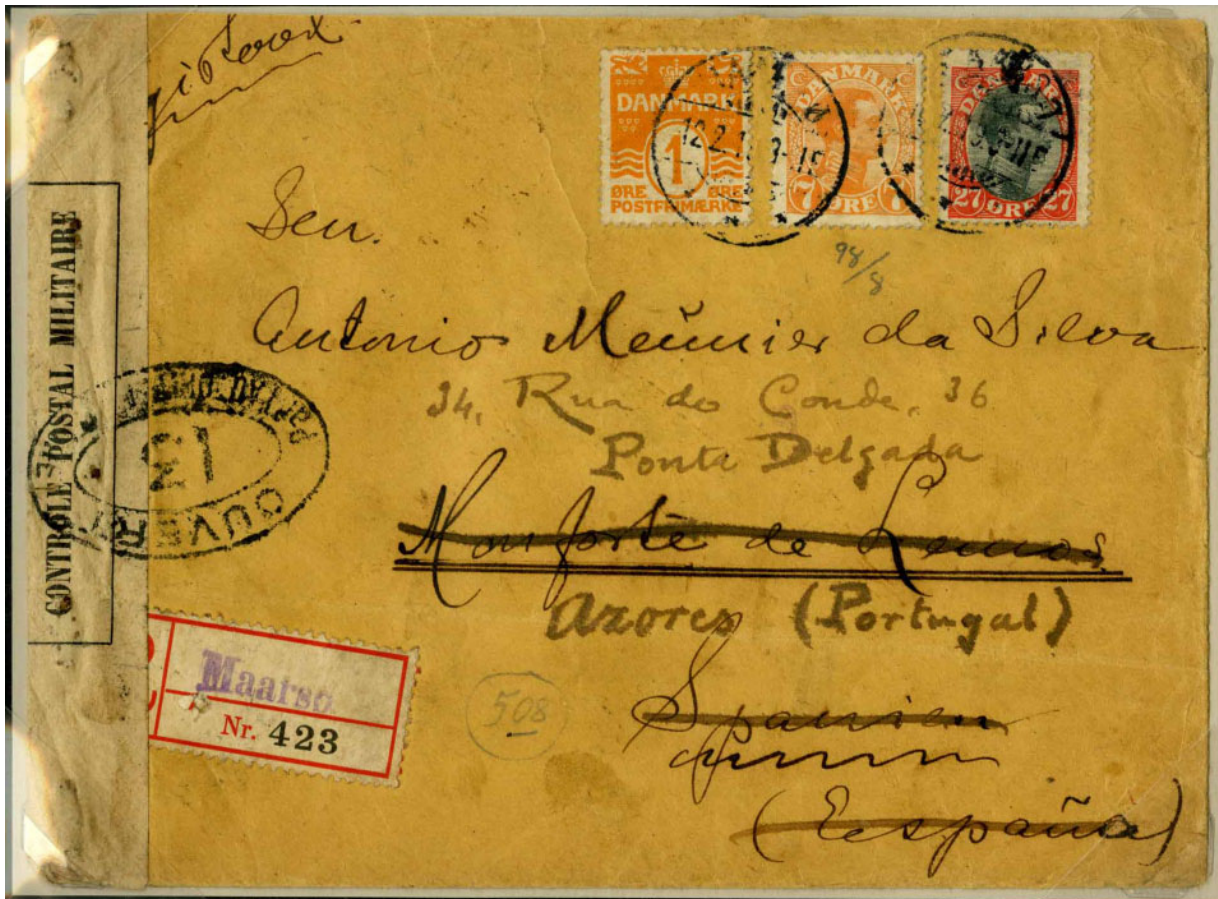 DANMARK
1
ØRE ØRE
POSTFRIMÆRKE
DANMARK
7 ØRE 7
DANMARK
27 ØRE 27
12.2.
98/8
Sen.
Antonio Meünier da Silva
34, Rua do Conde, 36
Ponta Delgada
Monforte de Lemos
Azores (Portugal)
Spanien
(España)
CONTROLE POSTAL MILITAIRE
OUVERT
13
Maarsø
Nr. 423
508